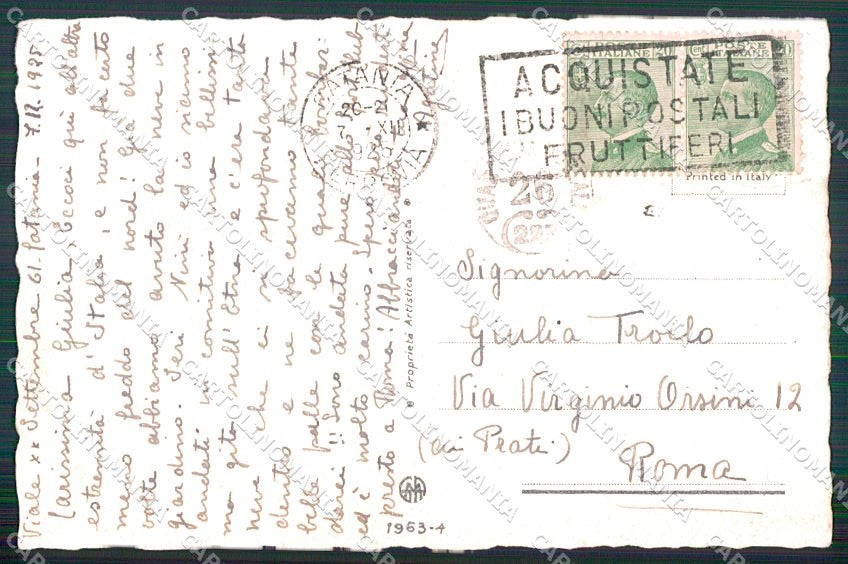 Viale XX Settembre 61. Catania - 7.12.1935
Carissima Giulia, Eccoci quì all'altra
estremità d'Italia, e non fa certo
meno freddo del nord! Già due
volte abbiamo avuto la neve in
giardino. Ieri Ninì ed io siamo
andati in comitiva in una bellissi
ma gita sull'Etna e c'era tanta
neve che ci si sprofondava
dentro e ne facevamo tante
belle palle con le quali bombar-
darci!! Sono andata pure allo
ed è molto carino. Spero
presto a Roma! Abbracciandoti
CATANIA
ACQUISTATE
I BUONI POSTALI
FRUTTIFERI
POSTE ITALIANE
20
POSTE ITALIANE
Printed in Italy
Signorina
Giulia Troilo
Via Virginio Orsini 12
(ai Prati)
Roma
Proprietà Artistica riservata
1963-4
CARTOLINOMANIA